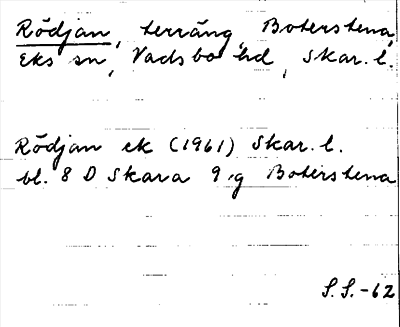 Rödjan, terräng, Boterstena,
Eks sn, Vadsbo hd, Skar. l.
Rödjan ek (1961) Skar. l.
bl. 8 D Skara 9 g Boterstena
S.S.-62